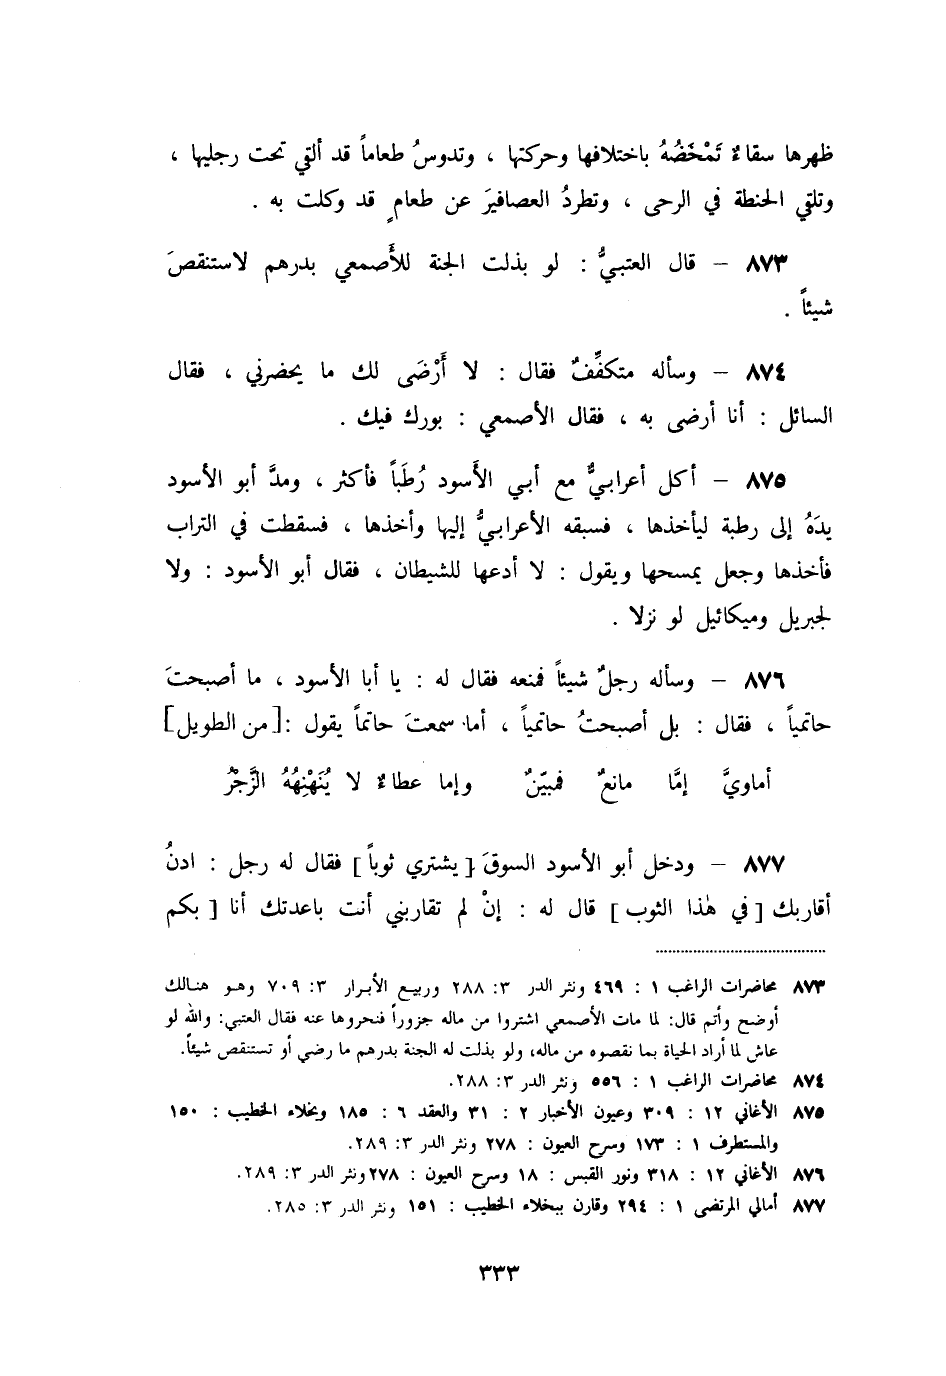 ظهرها سقاءٌ تَمْخَضُهُ باختلافها وحركتها ، وتدوسُ طعاماً قد ألقي تحت رجليها ،
وتلقي الحنطة في الرحى ، وتطردُ العصافيرَ عن طعامٍ قد وكلت به .
٨٧٣ – قال العتبيُّ : لو بذلت الجنة للأَصمعي بدرهم لاستنقصَ
شيئاً .
٨٧٤ – وسأله متكفِّفٌ فقال : لا أَرْضَى لك ما يحضرني ، فقال
السائل : أنا أرضى به ، فقال الأصمعي : بورك فيك .
٨٧٥ – أكل أعرابيٌّ مع أبي الأَسود رُطَباً فأكثر ، ومدَّ أبو الأسود
يدَهُ إلى رطبة ليأخذها ، فسبقه الأعرابيُّ إليها وأخذها ، فسقطت في التراب
فأخذها وجعل يمسحها ويقول : لا أدعها للشيطان ، فقال أبو الأسود : ولا
لجبريل وميكائيل لو نزلا .
٨٧٦ – وسأله رجلٌ شيئاً فمنعه فقال له : يا أبا الأسود ، ما أصبحتَ
حاتمياً ، فقال : بل أصبحتُ حاتمياً ، أما سمعتَ حاتماً يقول :[من الطويل]
أماويَّ إمَّا مانعٌ فمبيّنٌ وإما عطاءٌ لا يُنَهْنِهُهُ الزَّجْرُ
٨٧٧ – ودخل أبو الأسود السوقَ [يشتري ثوباً] فقال له رجل : ادنُ
أقاربك [في هٰذا الثوب] قال له : إنْ لم تقاربني أنت باعدتك أنا [بكم
٨٧٣ محاضرات الراغب ١ : ٤٦٩ ونثر الدر ٣: ٢٨٨ وربيع الأبرار ٣: ٧٠٩ وهو هنالك
أوضح وأتم قال: لما مات الأصمعي اشتروا من ماله جزوراً فنحروها عنه فقال العتبي: والله لو
عاش لما أراد الحياة بما نقصوه من ماله، ولو بذلت له الجنة بدرهم ما رضي أو تستنقص شيئاً.
٨٧٤ محاضرات الراغب ١ : ٥٥٦ ونثر الدر ٣: ٢٨٨.
٨٧٥ الأغاني ١٢ : ٣٠٩ وعيون الأخبار ٢ : ٣١ والعقد ٦ : ١٨٥ وبخلاء الخطيب : ١٥٠
والمستطرف ١ : ١٧٣ وسرح العيون : ٢٧٨ ونثر الدر ٣: ٢٨٩.
٨٧٦ الأغاني ١٢ : ٣١٨ ونور القبس : ١٨ وسرح العيون : ٢٧٨ ونثر الدر ٣: ٢٨٩.
٨٧٧ أمالي المرتضى ١ : ٢٩٤ وقارن ببخلاء الخطيب : ١٥١ ونثر الدر ٣: ٢٨٥.
٣٣٣